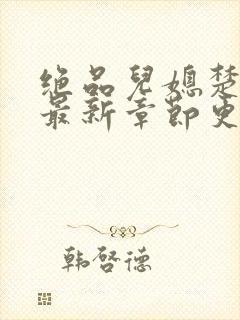 绝品兒媳楚
最新章節史
韩啓德